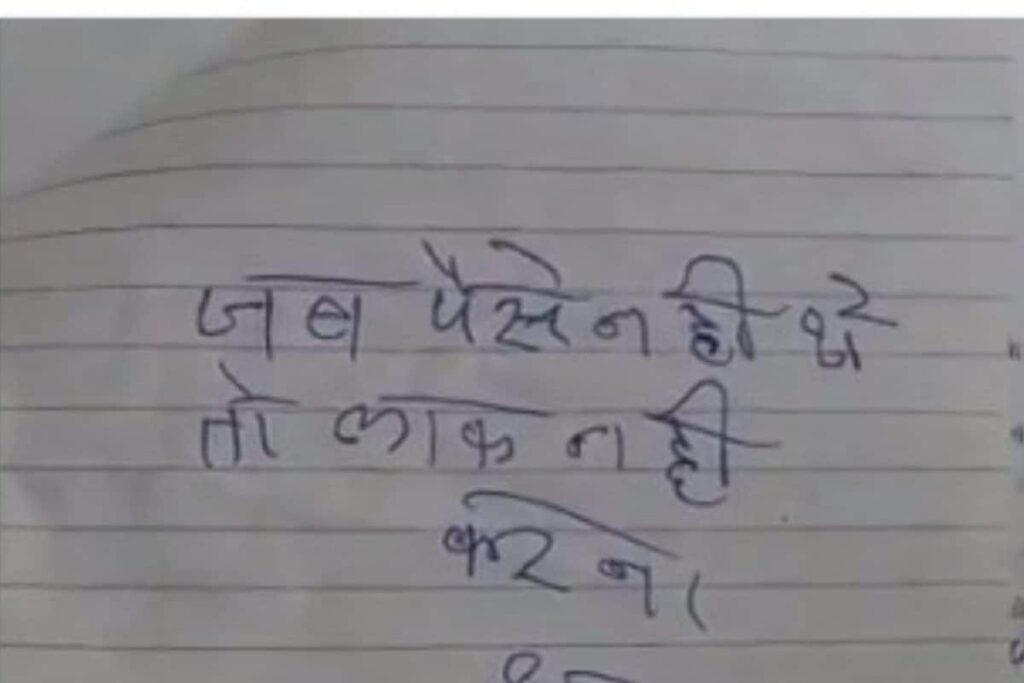 जब पैसे नही थे
तो लाक नही
करना